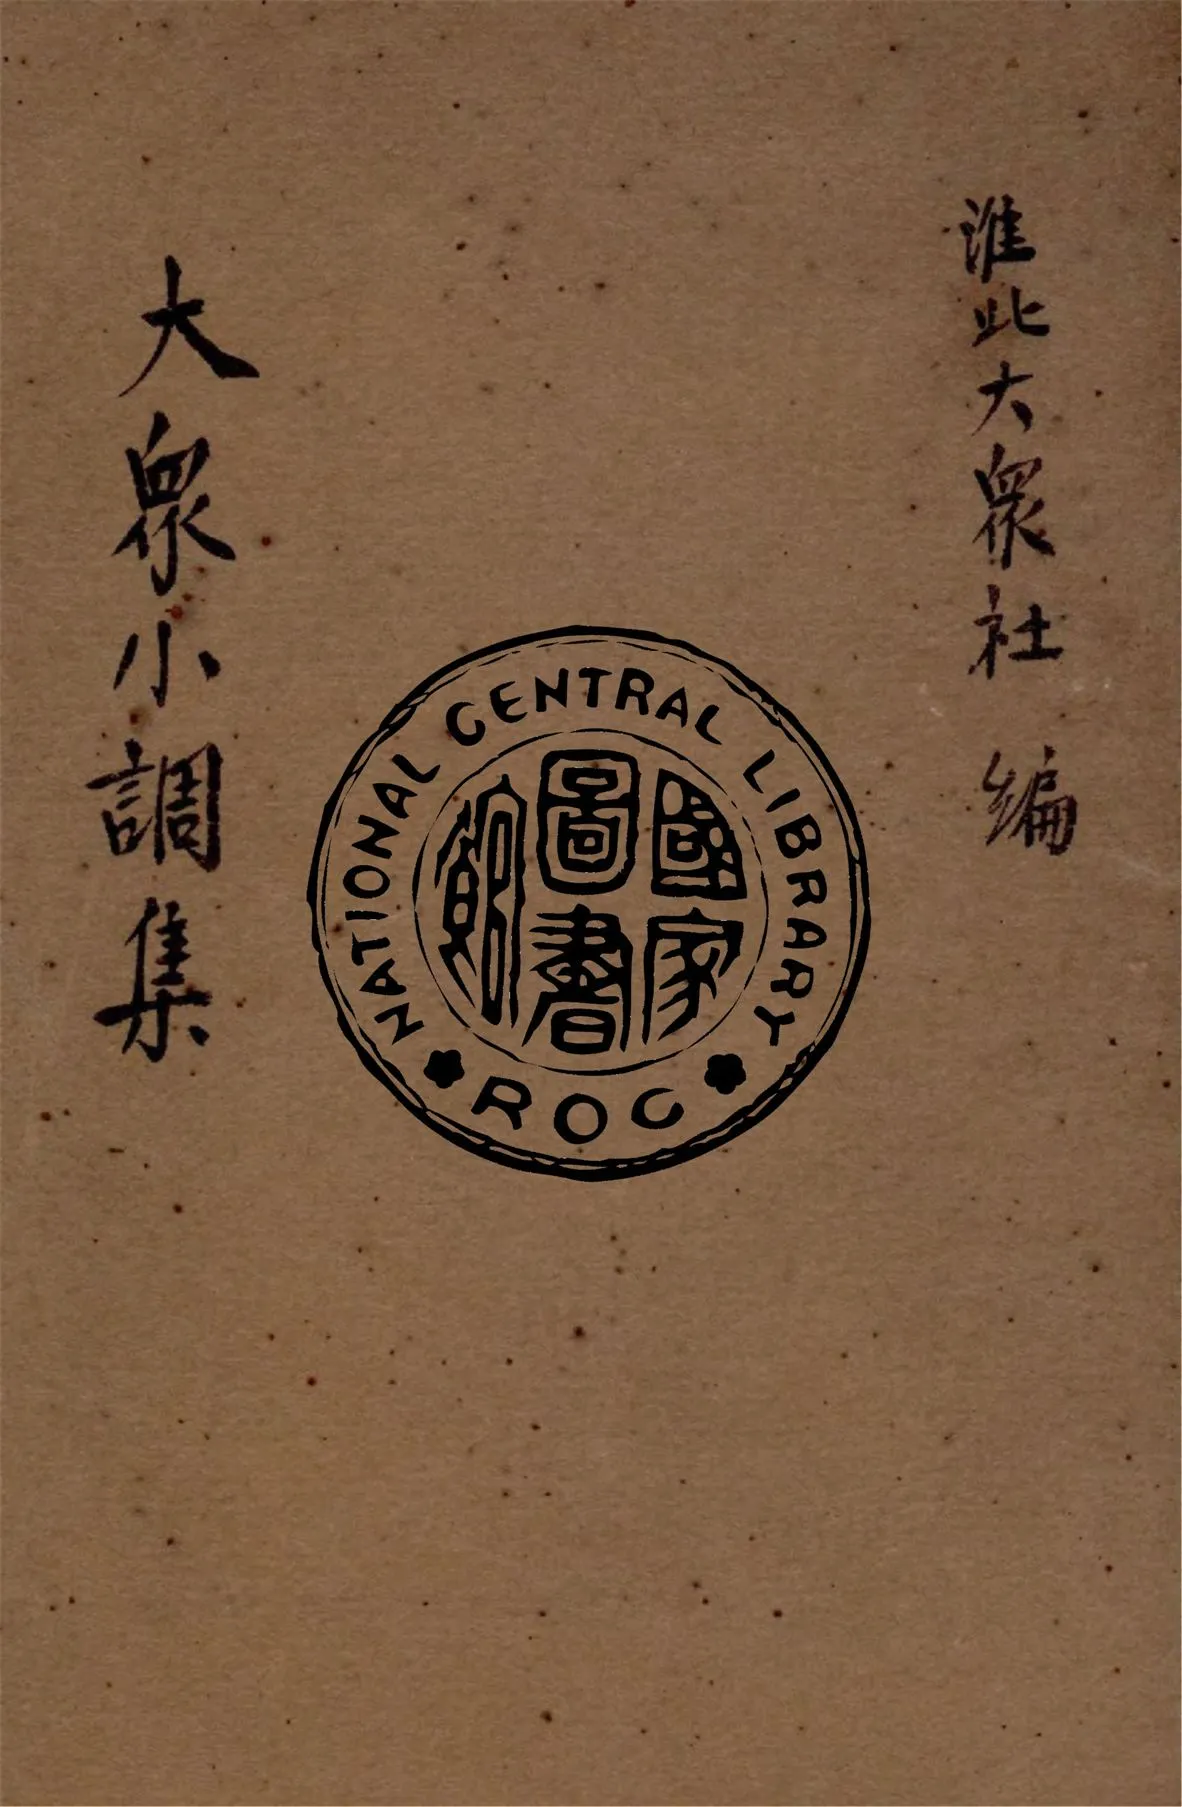 淮北大眾社 編
大眾小調集
NATIONAL CENTRAL LIBRARY
國家圖書館
ROC